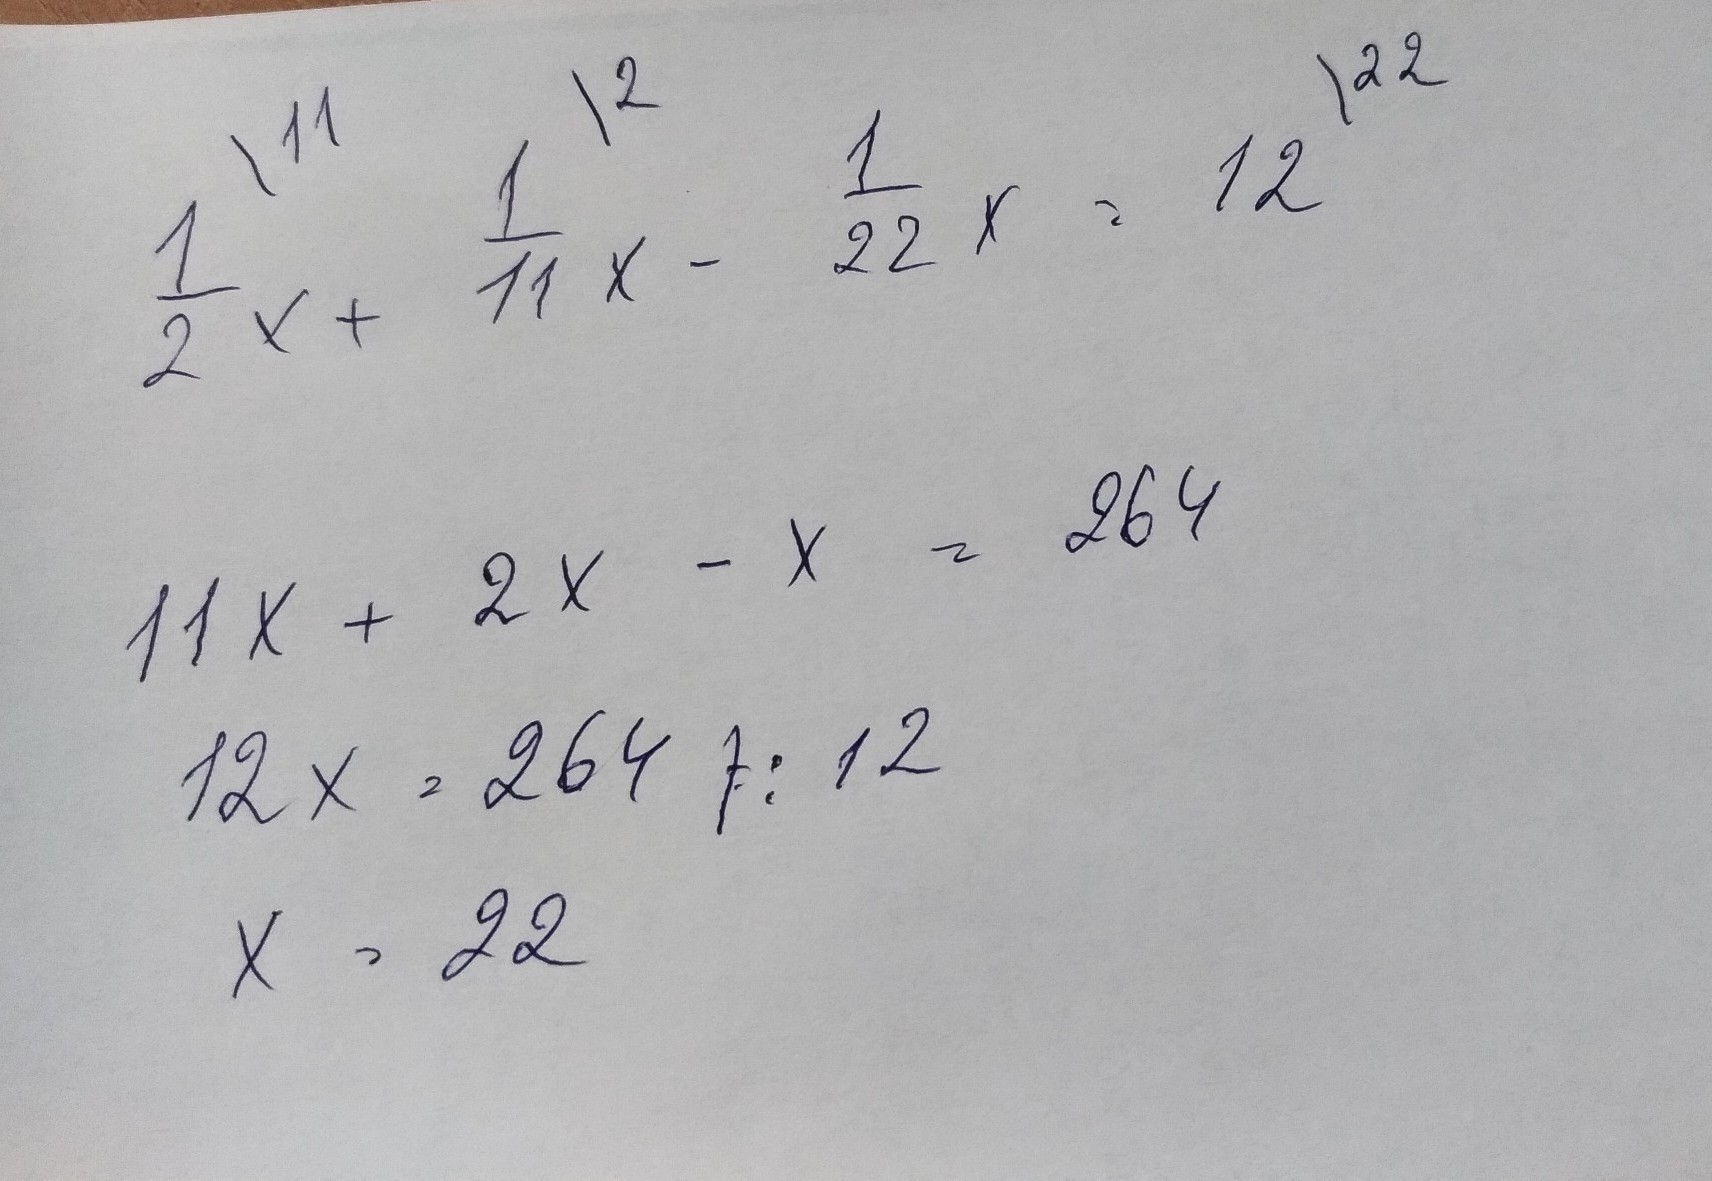 \11 \2 \22
1/2 x + 1/11 x - 1/22 x = 12
11x + 2x - x = 264
12x = 264 : 12
x = 22